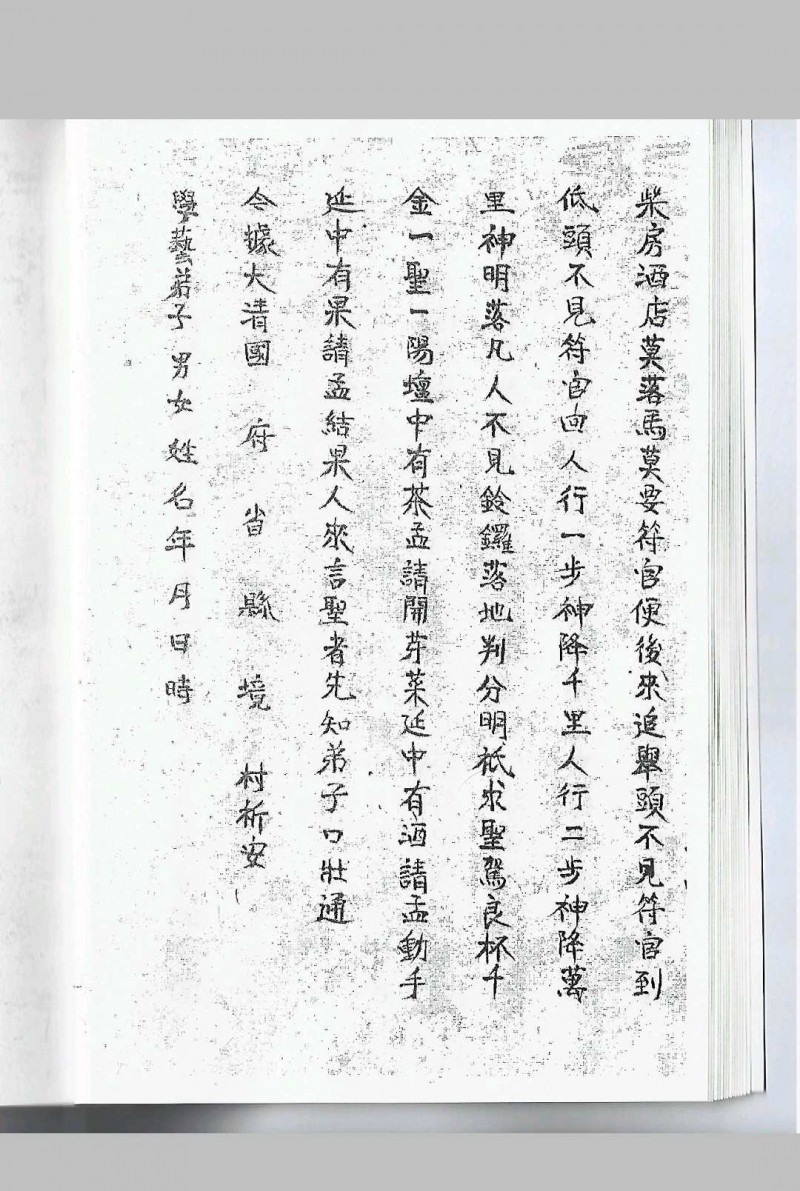 柴房酒店莫落馬莫要符官便後來追舉頭不見符官到
低頭不見符官回人行一步神降千里人行二步神降萬
里神明落凡人不見鈴鑼落地判分明祇求聖駕良杯千
金一聖一陽壇中有茶孟請開芽菜延中有酒請孟動手
延中有果請孟結果人來言聖者先知弟子口壯通
令據大清國 府 省 縣 境 村祈安
學藝弟子男女姓名年月日時